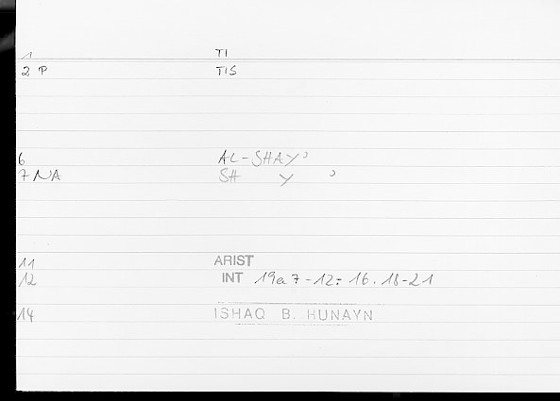 1 TI
2 P TIS
6 AL-SHAYʾ
7 NA SH Y ʾ
11 ARIST
12 INT 19a7-12: 16.18-21
14 ISHAQ B. HUNAYN